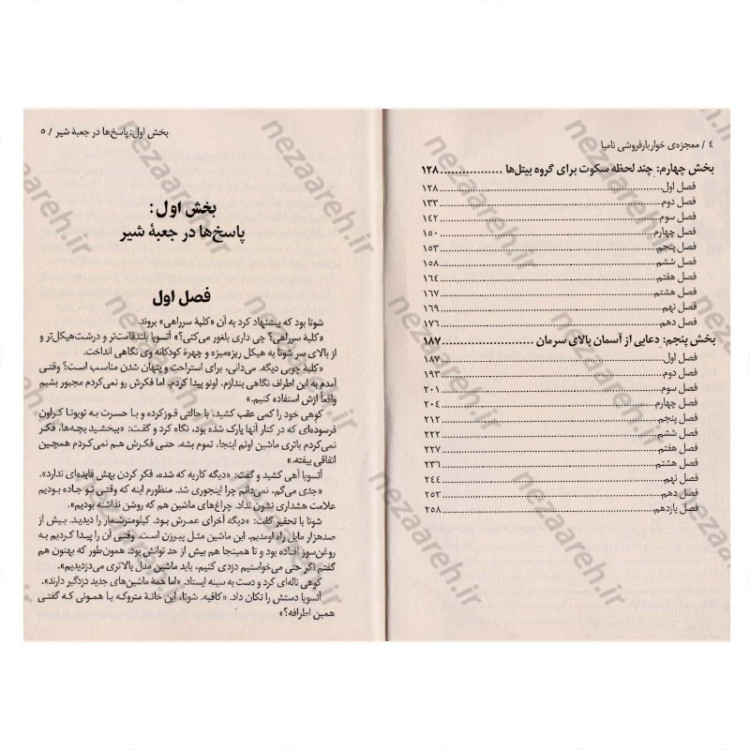 ۴ / معجزه‌ی خواربارفروشی نامیا
بخش چهارم: چند لحظه سکوت برای گروه بیتل‌ها ................. ۱۲۸
فصل اول ................. ۱۲۸
فصل دوم ................. ۱۳۳
فصل سوم ................. ۱۴۲
فصل چهارم ................. ۱۵۰
فصل پنجم ................. ۱۵۳
فصل ششم ................. ۱۵۸
فصل هفتم ................. ۱۶۴
فصل هشتم ................. ۱۶۷
فصل نهم ................. ۱۶۹
فصل دهم ................. ۱۷۶
بخش پنجم: دعایی از آسمان بالای سرمان ................. ۱۸۷
فصل اول ................. ۱۸۷
فصل دوم ................. ۱۹۳
فصل سوم ................. ۲۰۱
فصل چهارم ................. ۲۰۴
فصل پنجم ................. ۲۱۲
فصل ششم ................. ۲۲۲
فصل هفتم ................. ۲۲۷
فصل هشتم ................. ۲۳۶
فصل نهم ................. ۲۴۴
فصل دهم ................. ۲۵۲
فصل یازدهم ................. ۲۵۸
بخش اول: پاسخ‌ها در جعبهٔ شیر / ۵
بخش اول:
پاسخ‌ها در جعبهٔ شیر
فصل اول
شوتا بود که پیشنهاد کرد به آن «کلبهٔ سرراهی» بروند.
«کلبهٔ سرراهی؟ چی داری بلغور می‌کنی؟» آتسویا بلندقامت‌تر و درشت‌هیکل‌تر و
از بالای سر شوتا به هیکل ریزه‌میزه و چهرهٔ کودکانه وی نگاهی انداخت.
«کلبهٔ چوبی دیگه. می‌دانی، برای استراحت و پنهان شدن مناسب است؟ وقتی
آمدم به این اطراف نگاهی بندازم، اونو پیدا کردم. اما فکرش رو نمی‌کردم مجبور بشیم
واقعاً ازش استفاده کنیم.»
کوهی خود را کمی عقب کشید، با حالتی قوزکرده و با حسرت به تویوتا کراون
فرسوده‌ای که در کنار آنها پارک شده بود، نگاه کرد و گفت: «ببخشید بچه‌ها، فکر
نمی‌کردم باتری ماشین اونم اینجا، تموم بشه. حتی فکرش هم نمی‌کردم همچین
اتفاقی بیفته.»
آتسویا آهی کشید و گفت: «دیگه کاریه که شده، فکر کردن بهش فایده‌ای ندارد».
«جدی می‌گم، نمی‌دانم چرا اینجوری شد. منظورم اینه که وقتی تو جاده بودیم
علامت هشداری نشون نداد. چراغ‌های ماشین هم که روشن نذاشته بودیم».
شوتا با تحقیر گفت: «دیگه آخرای عمرش بود. کیلومترشمار را دیدید. بیش از
صدهزار مایل راه اومدیم. این ماشین مثل پیرزن است. وقتی آن را پیدا کردیم به
روغن‌سوز افتاده بود و تا همینجا هم بیش از حد توانش بود. همون‌طور که بهتون هم
گفتم اگر حتی می‌خواستیم دزدی کنیم، باید ماشین مدل بالاتری می‌دزدیدیم».
کوهی ناله‌ای کرد و دست به سینه ایستاد. «اما همهٔ ماشین‌های جدید دزدگیر دارند».
آتسویا دستش را تکان داد. «کافیه. شوتا، این خانهٔ متروکه با همونی که گفتی
همین اطرافه؟»
nezaareh.ir
nezaareh.ir
nezaareh.ir
nezaareh.ir
nezaareh.ir
nezaareh.ir